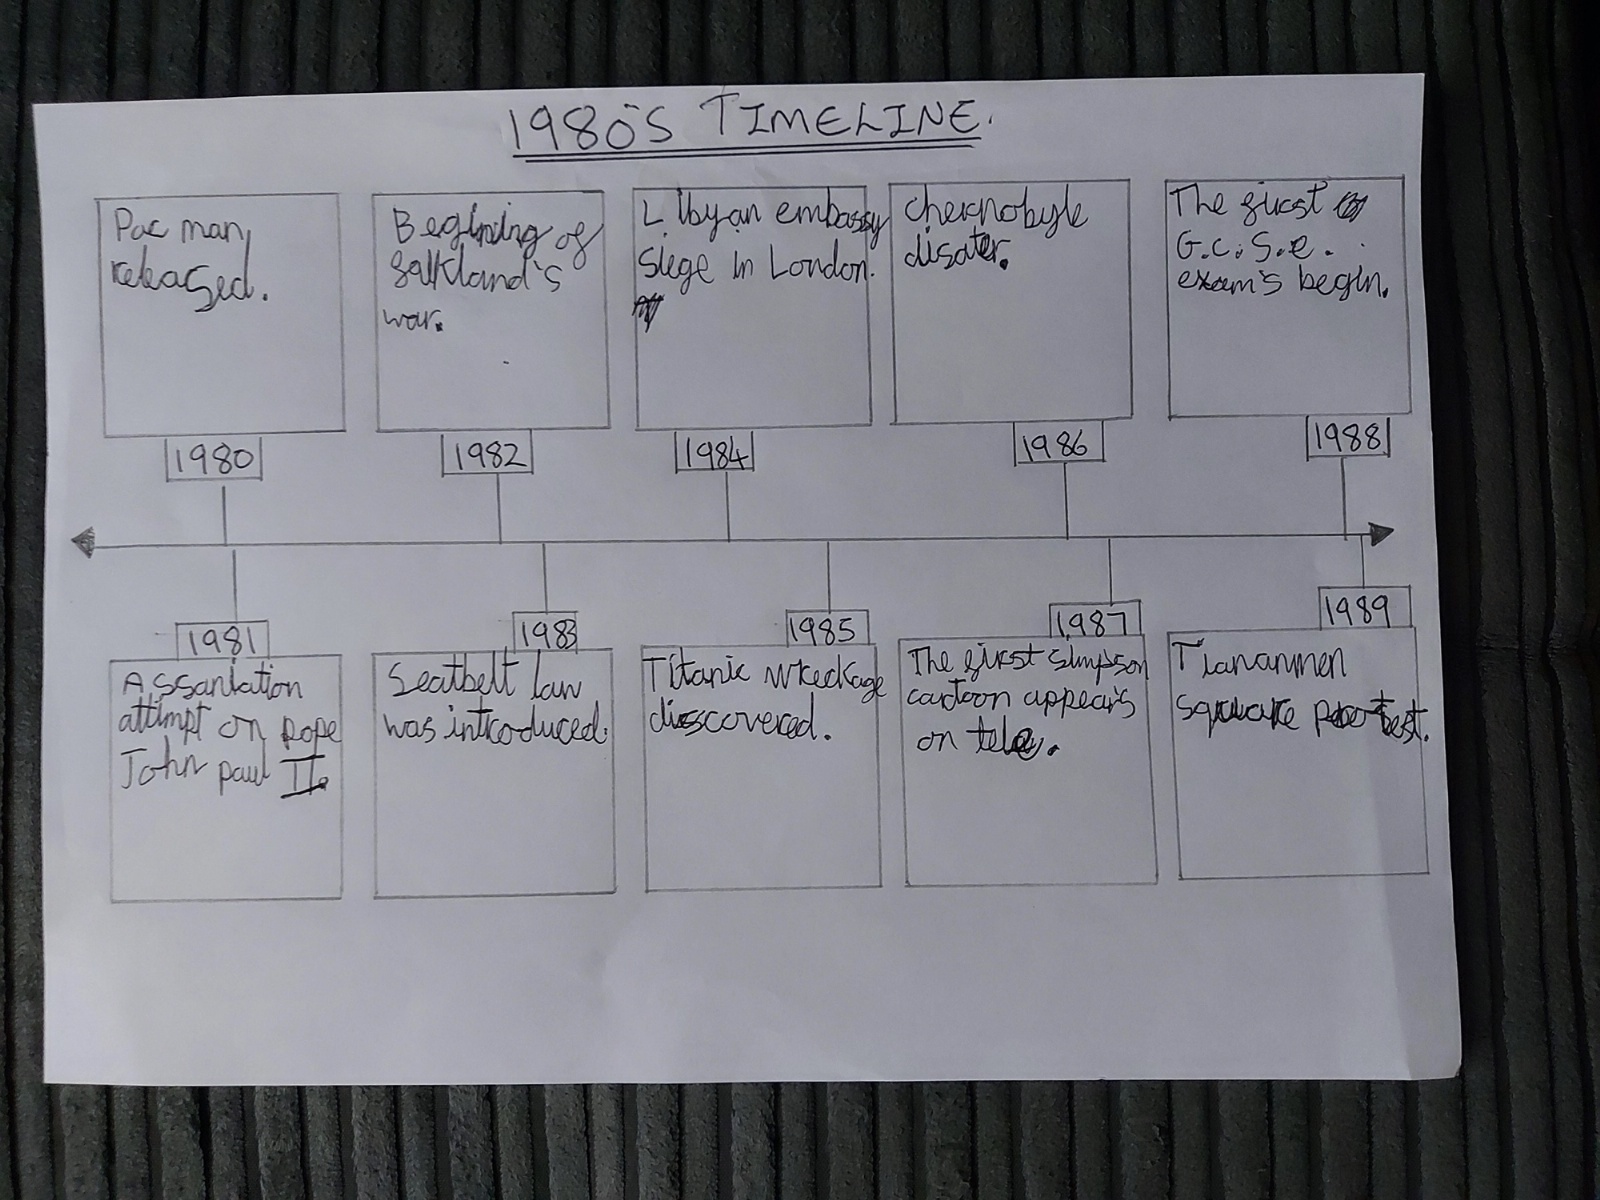 1980's TIMELINE.
Pac man
released.
1980
Begining of
falkland's
war.
1982
Libyan embassy
siege in London.
1984
chernobyle
disater.
1986
The first
G.C.S.e.
exam's begin.
1988
1981
Assaniation
attimpt on pope
John paul II.
1983
Seatbelt law
was introduced.
1985
Titanic wreckage
discovered.
1987
The first simpson
cartoon appear's
on tele.
1989
Tiananmen
square protest.